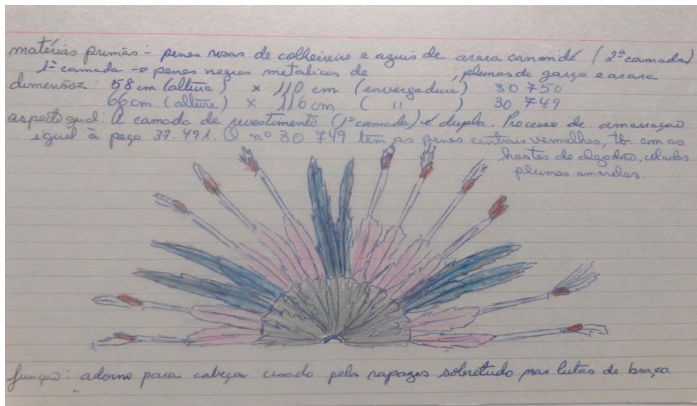 matérias primas - penas rosas de colheireiro e azuis de arara canindé (2ª camada)
1ª camada -> penas negras metálicas de , plumas de garça e arara
dimensões: 58 cm (altura) × 110 cm (envergadura) 30 750
66 cm (altura) × 116 cm ( " ) 30 749
aspecto geral: A camada de revestimento (1ª camada) é dupla. Processo de amarração
igual à peça 37.491. O nº 30 749 tem as penas centrais vermelhas, tb com as
hastes de algodão, coladas
plumas
função: adorno para cabeça usado pelos rapazes sobretudo nas lutas de braço